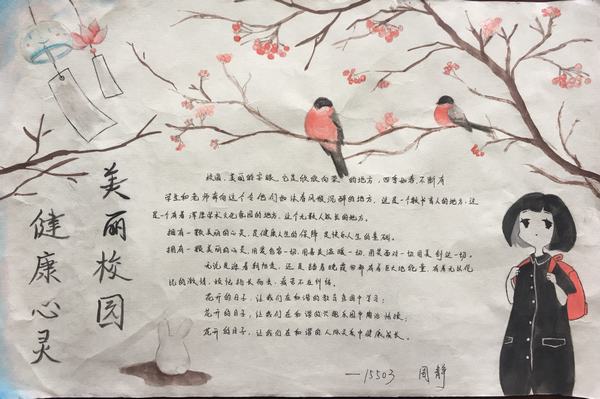 美丽校园
健康心灵
校园,美丽的字眼,它是欣欣向荣的地方,四季如春,不断有
学生和老师奔向这个令他们如沐春风般沉醉的地方,这是一个教书育人的地方,这
是一个有着浑厚学术文化家园的地方,这个无数人成长的地方。
拥有一颗美丽的心灵,是健康人生的保障,是快乐人生的基础。
拥有一颗美丽的心灵,用爱包容一切,用善美温暖一切,用爱面对一切用美创造一切。
无论是迎着朝阳走,还是踏着晚霞回都有着巨大地能量,有着无从优
比的激情,
花开的日子,让我们在和谐的教育乐园中学习;
花开的日子,让我们在和谐的兴趣乐园中
花开的日子,让我们在和谐的人际关系中健康成长。
—15503 周静